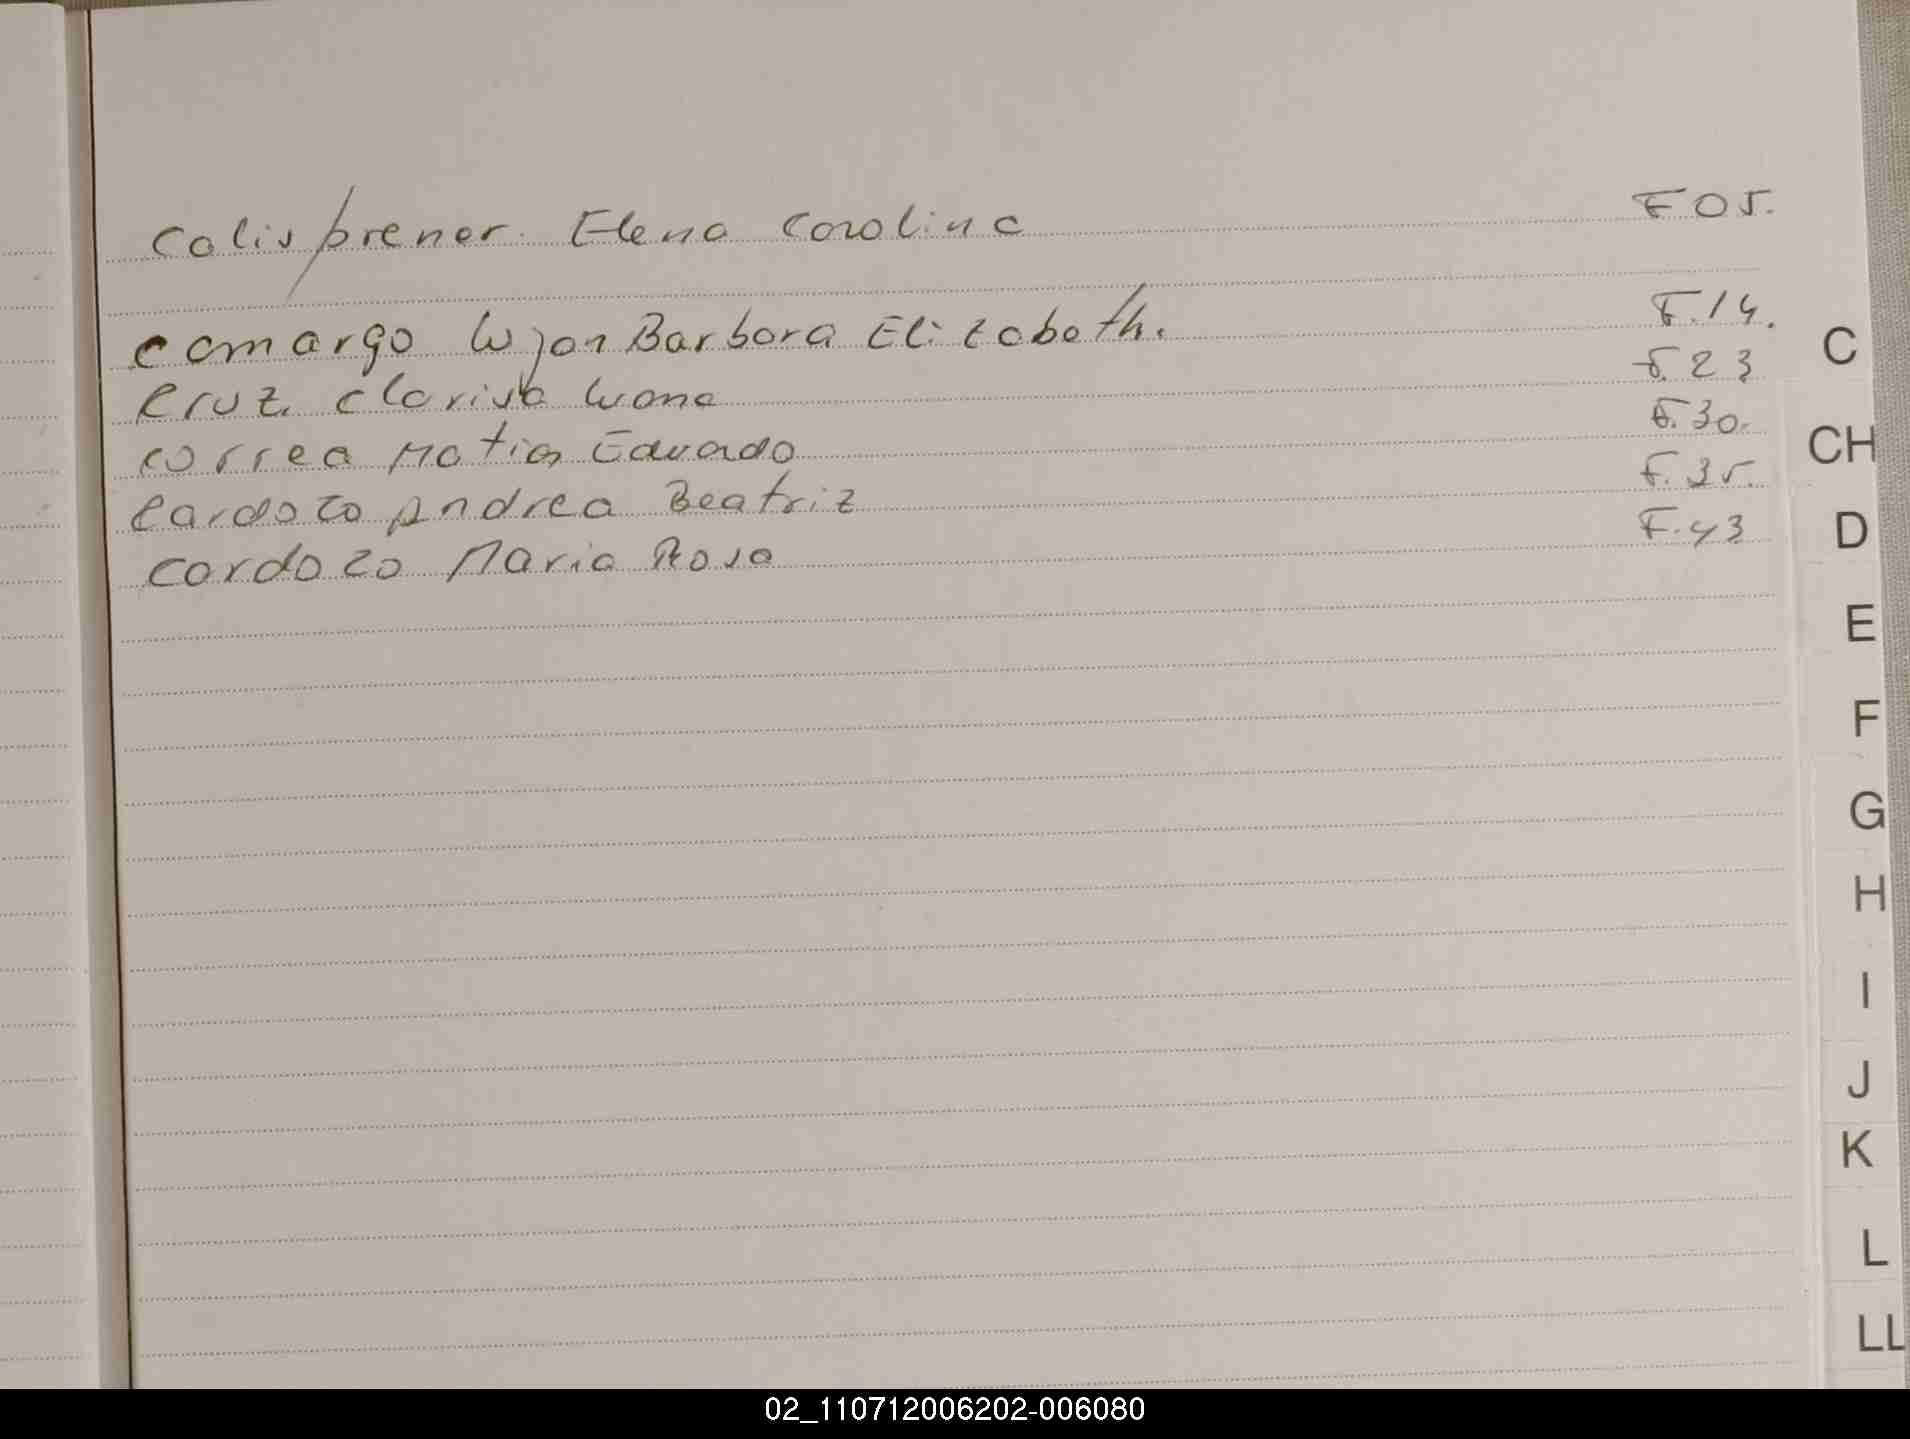 Calisprener Elena Carolina F 05.
Camargo Lujan Barbara Elizabeth. F.14.
Cruz Clarisa F.23
Correa Matias Eduardo F.30.
Cardozo Andrea Beatriz F.35.
Cardozo Maria Rosa F.43
C
CH
D
E
F
G
H
I
J
K
L
LL
02_110712006202-006080